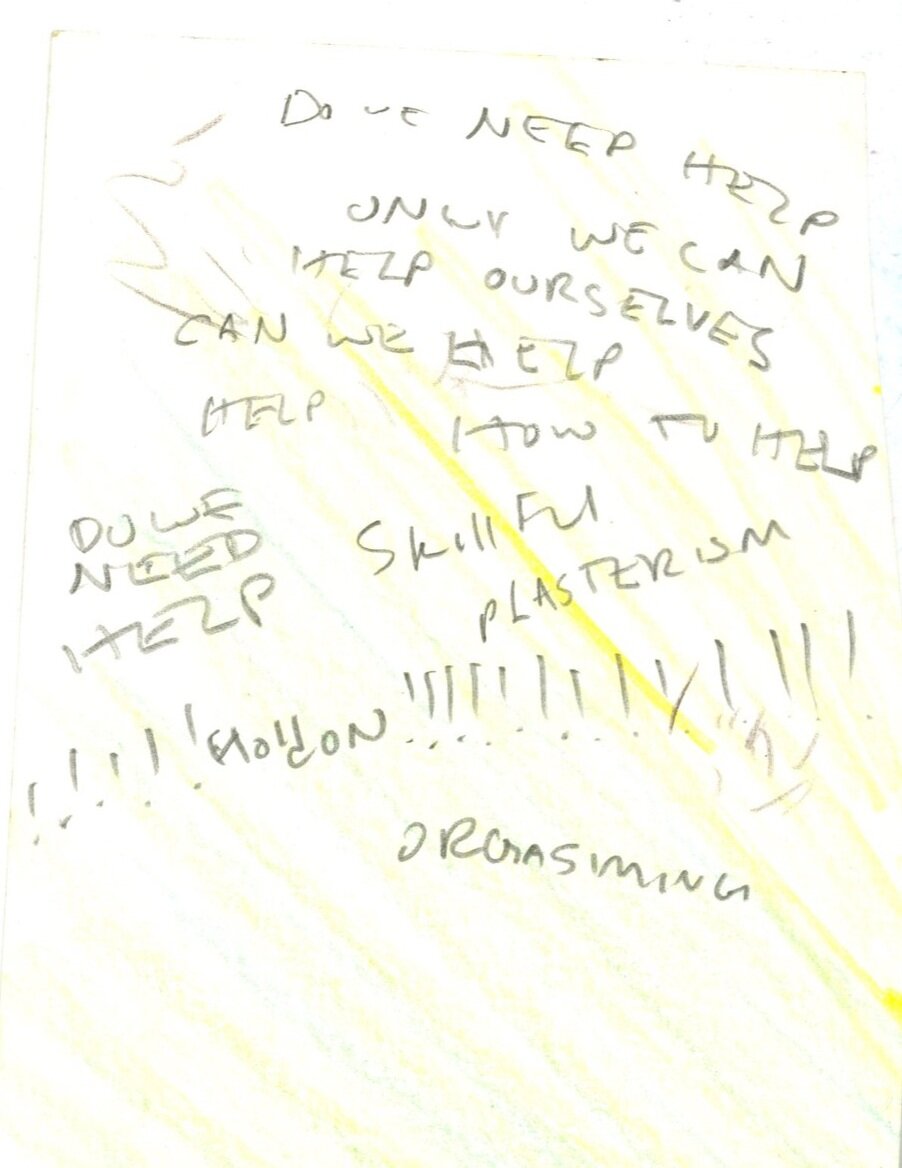 Do WE NEED HELP
ONLY WE CAN
HELP OURSELVES
CAN WE HELP
HELP HOW TO HELP
DO WE
NEED
HELP
Skillful
PLASTERISM
!!!!! Hold ON !!!!!!!!!!!!!!!
ORGASIMING